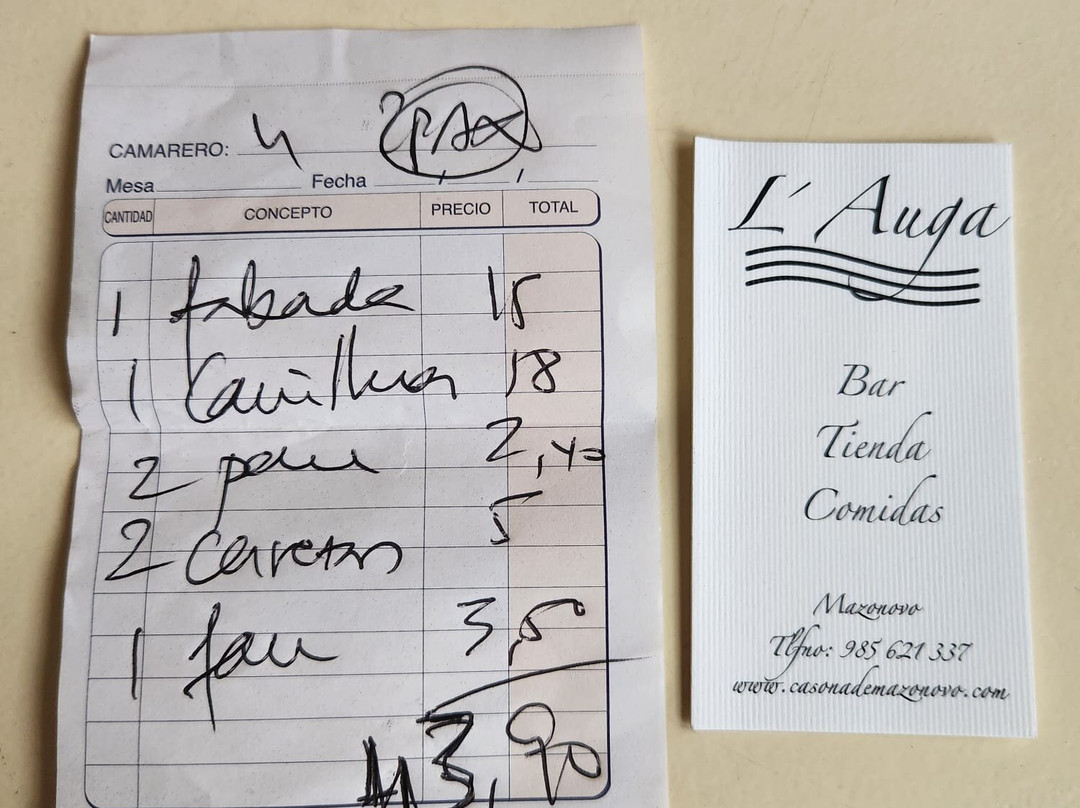 CAMARERO: 4 2 PAX
Mesa Fecha
CANTIDAD CONCEPTO PRECIO TOTAL
1 fabada 15
1 18
2 pan 2,40
2 5
1 3,5
43,90
L´Auga
Bar
Tienda
Comidas
Mazonovo
Tlfno: 985 621 337
www.casonademazonovo.com